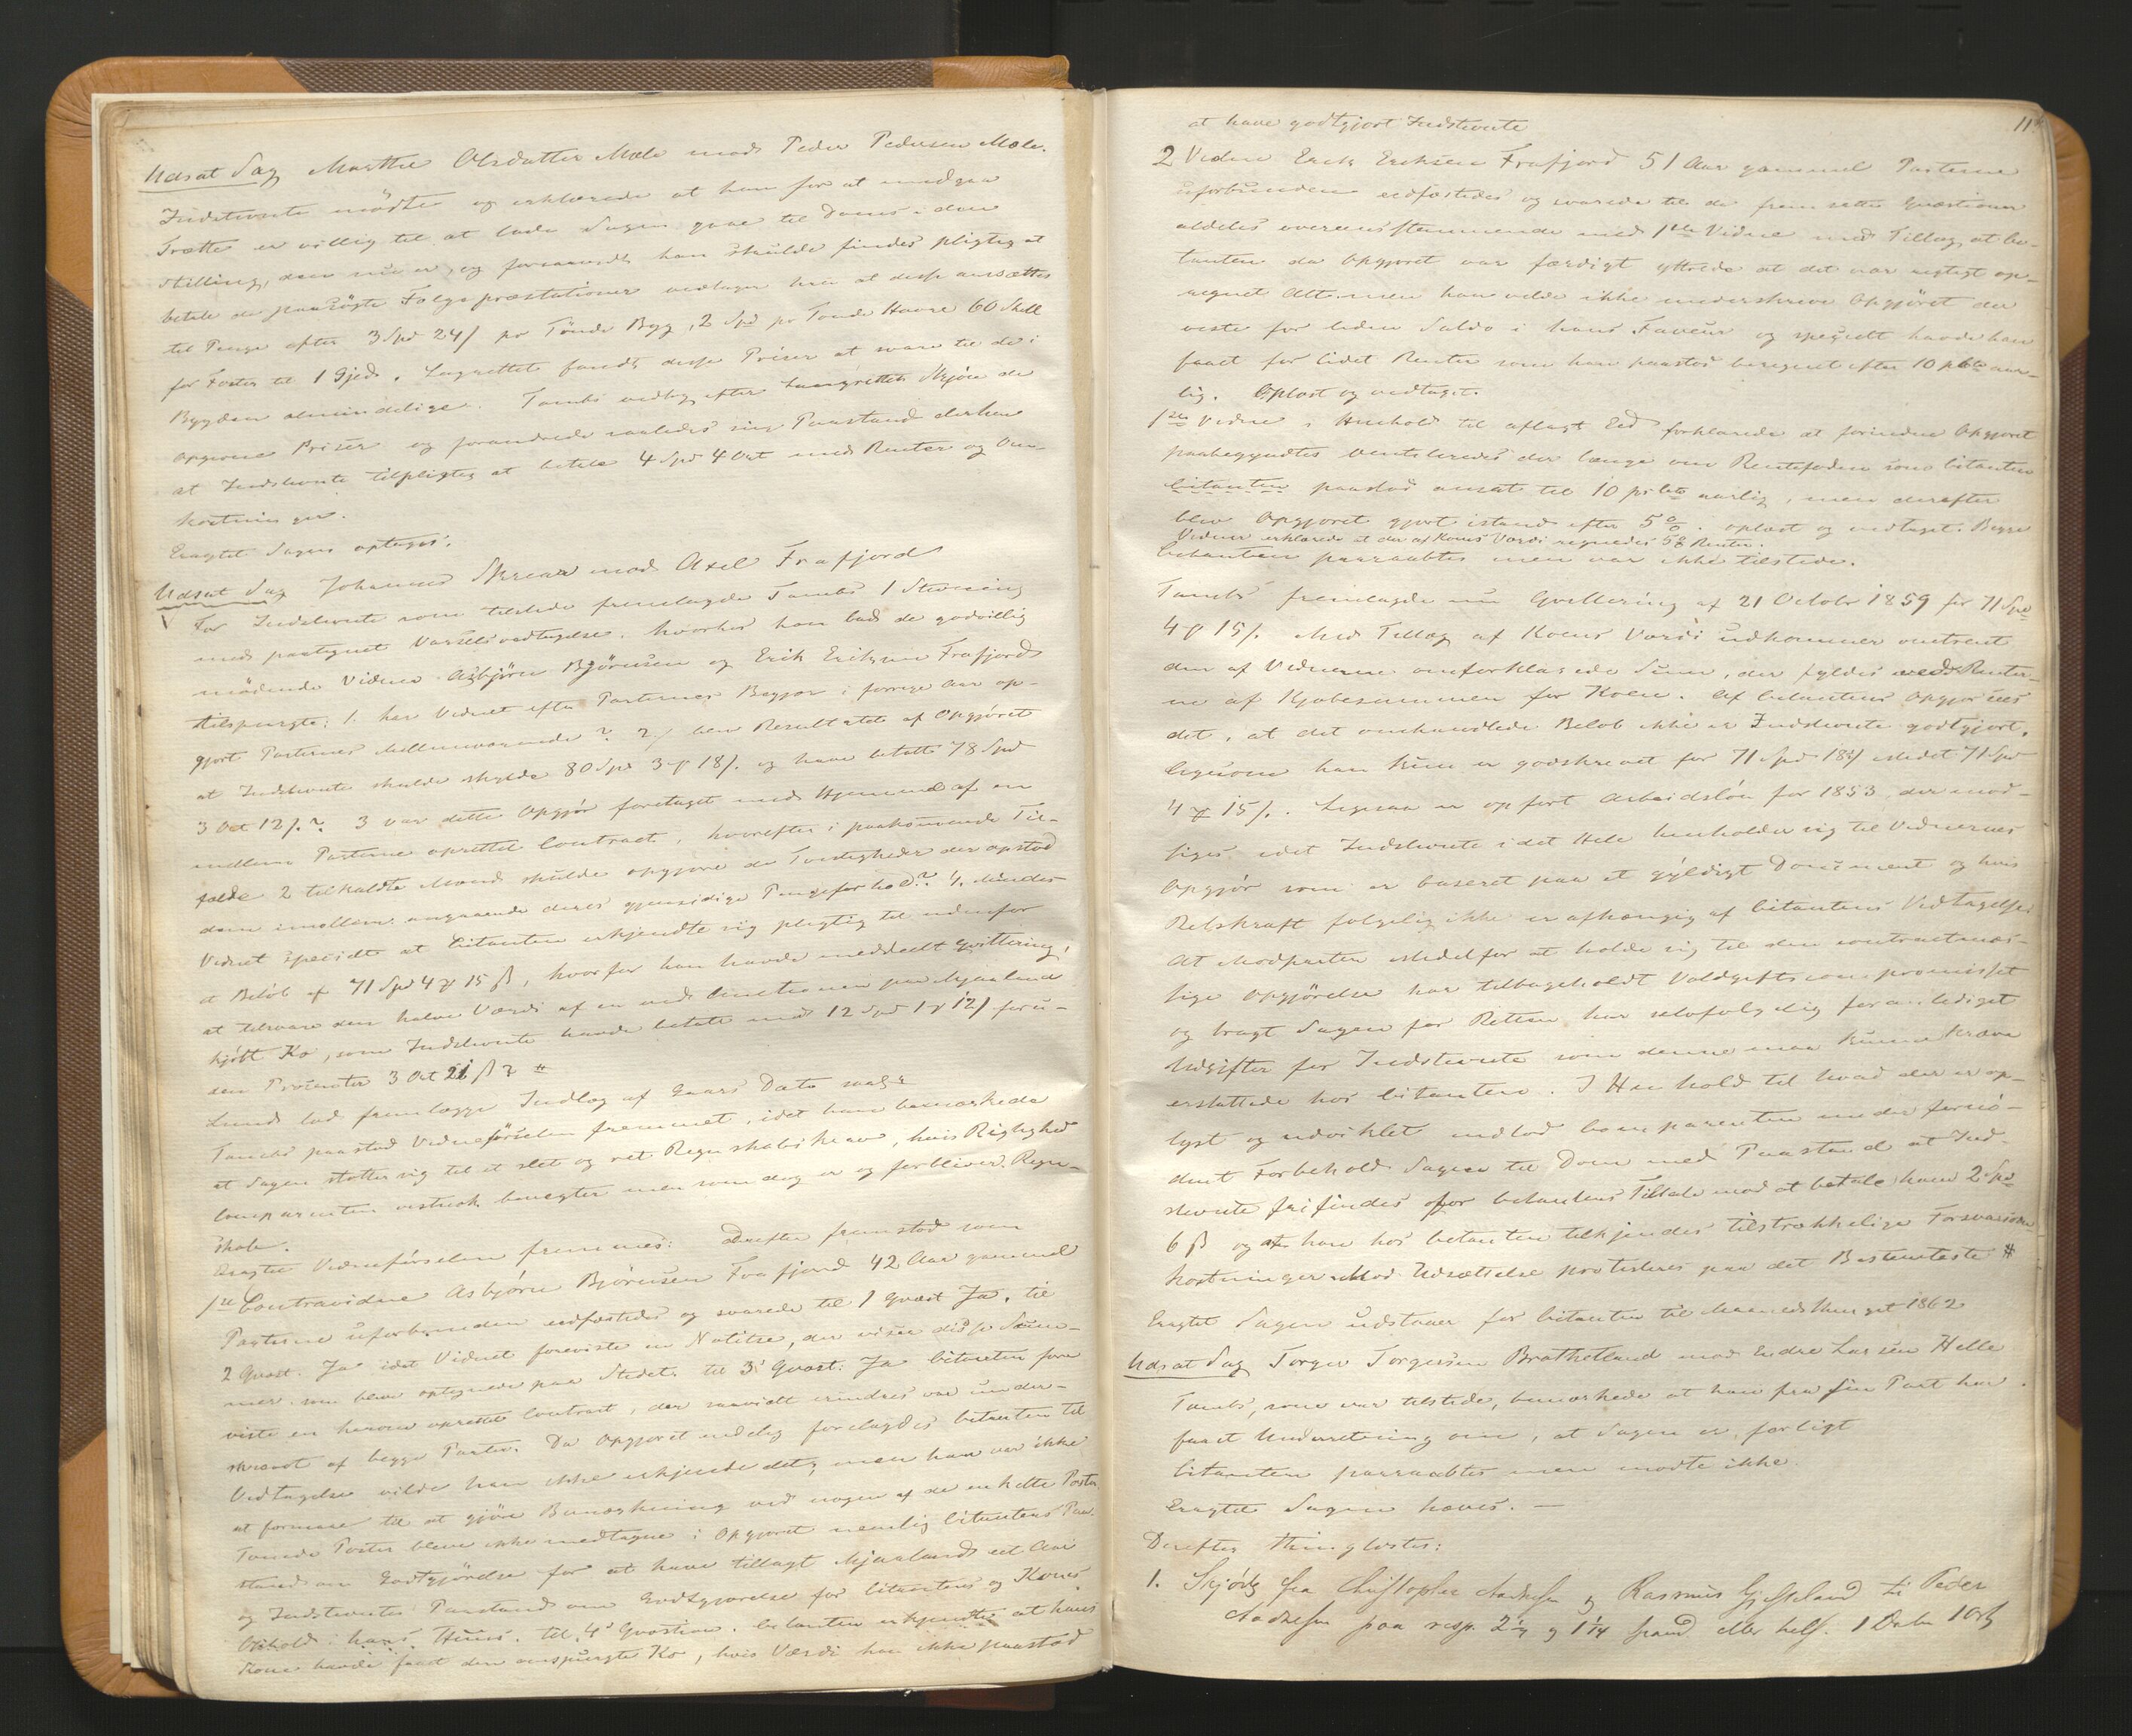 Udsat Sag Marthe Olsdatter Mæle mod Peder Pedersen Mæle.
Indstevnte mødte og erklærede at han for at undgaa
Trætte er villig til at lade Sagen gaae til Doms i den
Stilling, den nu er, og forsaavidt han skulde findes pligtig at
betale de paasøgte Følgepræstationer vedtager han at disse ansættes
til Penge efter 3 Spd 24 ß pr Tønde Byg, 2 Spd pr Tønde Havre 60 Skill
for Foster til 1 Gjed. Lagrettet fandt disse Priser at svare til de i
Bygden almindelige. Tambs vedtog efter Laugrettets Skjøn de
opgivne Priser og forandrede saaledes sin Paastand derhen
at Indstevnte tilpligtes at betale 4 Spd 4 Ort med Renter og Om-
kostninger.
Eragtet Sagen optages.
Udsat Sag Johannes Skreaa mod Axel Frafjord
For Indstevnte som tilstede fremlagde Tambs 1 Stevning
med paategnet Varselsvedtagelse. hvorhos han bad de godvillig
mødende Vidner Asbjørn Bjørnsen og Erik Eriksen Frafjord
tilspurgte: 1. har Vidnet efter Parternes Begjær i forrige Aar op-
gjort Parternes Mellemværende? 2/ blev Resultatet af Opgjøret
at Indstevnte skulde skylde 80 Spd 3 # 18 ß. og have betalt 78 Spd
3 Ort 12 ß.? 3 var dette Opgjør foretaget med Hjemmel af en
mellem Parterne oprettet Contract, hvorefter i paakommende Til-
fælde 2 tilkaldte Mænd skulde opgjøre de Tvistigheder der opstod
dem imellem angaaende deres gjensidige Pengeforhold? 4. Mindes
Vidnet specielt at Citanten erkjendte sig pligtig til udenfor
et Beløb af 71 Spd 4 # 15 ß, hvorfor han havde meddeelt Qvittering,
at tilsvare den halve Værdi af en ved Auctionen paa Mjaaland
kjøbt Ko, som Indstevnte havde betalt med 12 Spd 1 # 12 ß foru-
den Procenter 3 Ort 21 ß? #
Lund lod fremlægge Indlæg af Gaars Dato
Tambs paastod Vidneførselen fremmet, idet han bemærkede
at Sagen støtter sig til et slet og ret Regnskabskrav, hvis Rigtighed
Comparenten vistnok benegter men som dog er og forbliver Regn-
skab.
Eragtet Vidneførselen fremmes: Derefter fremstod som
1ste Contravidne Asbjørn Bjørnsen Frafjord 42 Aar gammel
Parterne uforbunden eedfæstedes og svarede til 1 Qvæst Ja. til
2 Qvæst. Ja idet Vidnet foreviste en Notitse, der viser disse Sum-
mer som blev optegnede paa Stedet, til 3die Qvæst: Ja Citanten fore
viste en herom oprettet Contract, der saavidt erindres var under-
skrevet af begge Parter. Da Opgjøret endelig forelagdes Citanten til
Vedtagelse vilde han ikke erkjende det, men han var ikke
at formaae til at gjøre Bemærkning ved nogen af de enkelte Poster
Tvende Poster bleve ikke medtagne i Opgjøret nemlig Citantens Paa-
stand om Godtgjørelse for at have tillagt Mjaaland eet Aar
og Indstevntes Paastand om Godtgjørelse for Citantens og Kones
Ophold i hans Huus. til 4de Qvæstion. Citanten erkjendte at hans
Kone havde faaet den omspurgte Ko, hvis Værdi han ikke paastod
11
at have godtgjort Indstevnte
2 Vidne Erik Eriksen Frafjord 51 Aar gammel Parterne
uforbunden eedfæstedes og svarede til de fremsatte Qvæstioner
aldeles overeensstemmende med 1ste Vidne med Tillæg at Ci-
tanten da Opgjøret var færdigt yttrede at det var rigtigt op-
regnet Alt. men han vilde ikke underskrive Opgjøret der
viste for liden Saldo i hans Faveur og specielt havde han
faaet for lidet Renter som han paastod beregnet efter 10 pCto aar-
lig. Oplæst og vedtaget.
1ste Vidne i Henhold til aflagt Eed forklarede at forinden Opgjøret
paabegyndtes ventileredes der længe om Rentefoden som Citanten
Citanten paastod ansat til 10 prCto aarlig, men derefter
blev Opgjøret gjort istand efter 5 %. oplæst og vedtaget. Begge
Vidner erklærede at der af Koens Værdi regnedes 5 % Renter.
Citanten paaraabtes men var ikke tilstede.
Tambs fremlagde nu Qvittering af 21 October 1859 for 71 Spd
4 # 15 ß. Med Tillæg af Koens Værdi udkommer omtrent
den af Vidnerne omforklarede Sum, der fyldes ved Renter-
ne af Kjøbesummen for Koen. Af Citantens Opgjør sees
det, at det omhandlede Beløb ikke er Indstevnte godtgjort,
ligesom han kun er godskrevet for 71 Spd 18 ß istedet 71 Spd
4 # 15 ß. Ligesaa er opført Arbeidsløn for 1853 der mod-
siges idet Indstevnte i det Hele henholder sig til Vidnernes
Opgjør som er baseret paa et gyldigt Document og hvis
Retskraft følgelig ikke er afhængig af Citantens Vedtagelse.
At Modparten istedetfor at holde sig til den contractmæs-
sige Opgjørelse har tilbageholdt Voldgiftscompromisset
og bragt Sagen for Retten har selvfølgelig foranlediget
Udgifter for Indstevnte som denne maa kunne kræve
erstattede hos Citanten. I Henhold til hvad der er op-
lyst og udviklet indlod Comparenten under fornø-
dent Forbehold Sagen til Dom med Paastand at Ind-
stevnte frifindes for Citantens Tiltale mod at betale ham 2 Spd
6 ß og at han hos Citanten tilkjendes tilstrækkelige Forsvarsom-
kostninger. Mod Udsættelse protesteres paa det Bestemteste #
Eragtet Sagen udstaaer for Citanten til 1862
Udsat Sag Torger Torgersen Brathetland mod Endre Larsen Helle
Tambs, som var tilstede, bemærkede at han fra sin Part har
faaet Underretning om, at Sagen er forligt
Citanten paaraabtes men mødte ikke.
Eragtet Sagen hæves. —
Derefter thinglæstes:
1. Skjøde fra Christopher Aadnesen og Rasmus Gjesteland til Peder
Aadnesen paa resp. 2 1/4 og 1 1/4 Spand eller hels. 1 Daler 1 Ort